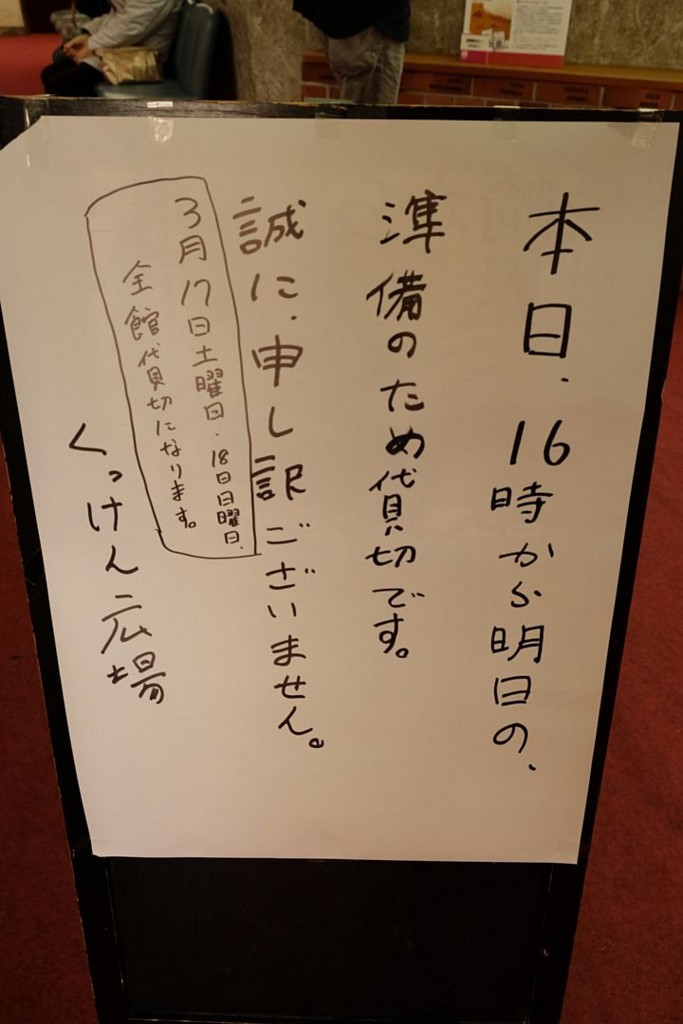 本日、16時から明日の、
準備のため貸切です。
誠に、申し訳ございません。
3月17日土曜日、18日日曜日、
全館貸切になります。
くっけん広場